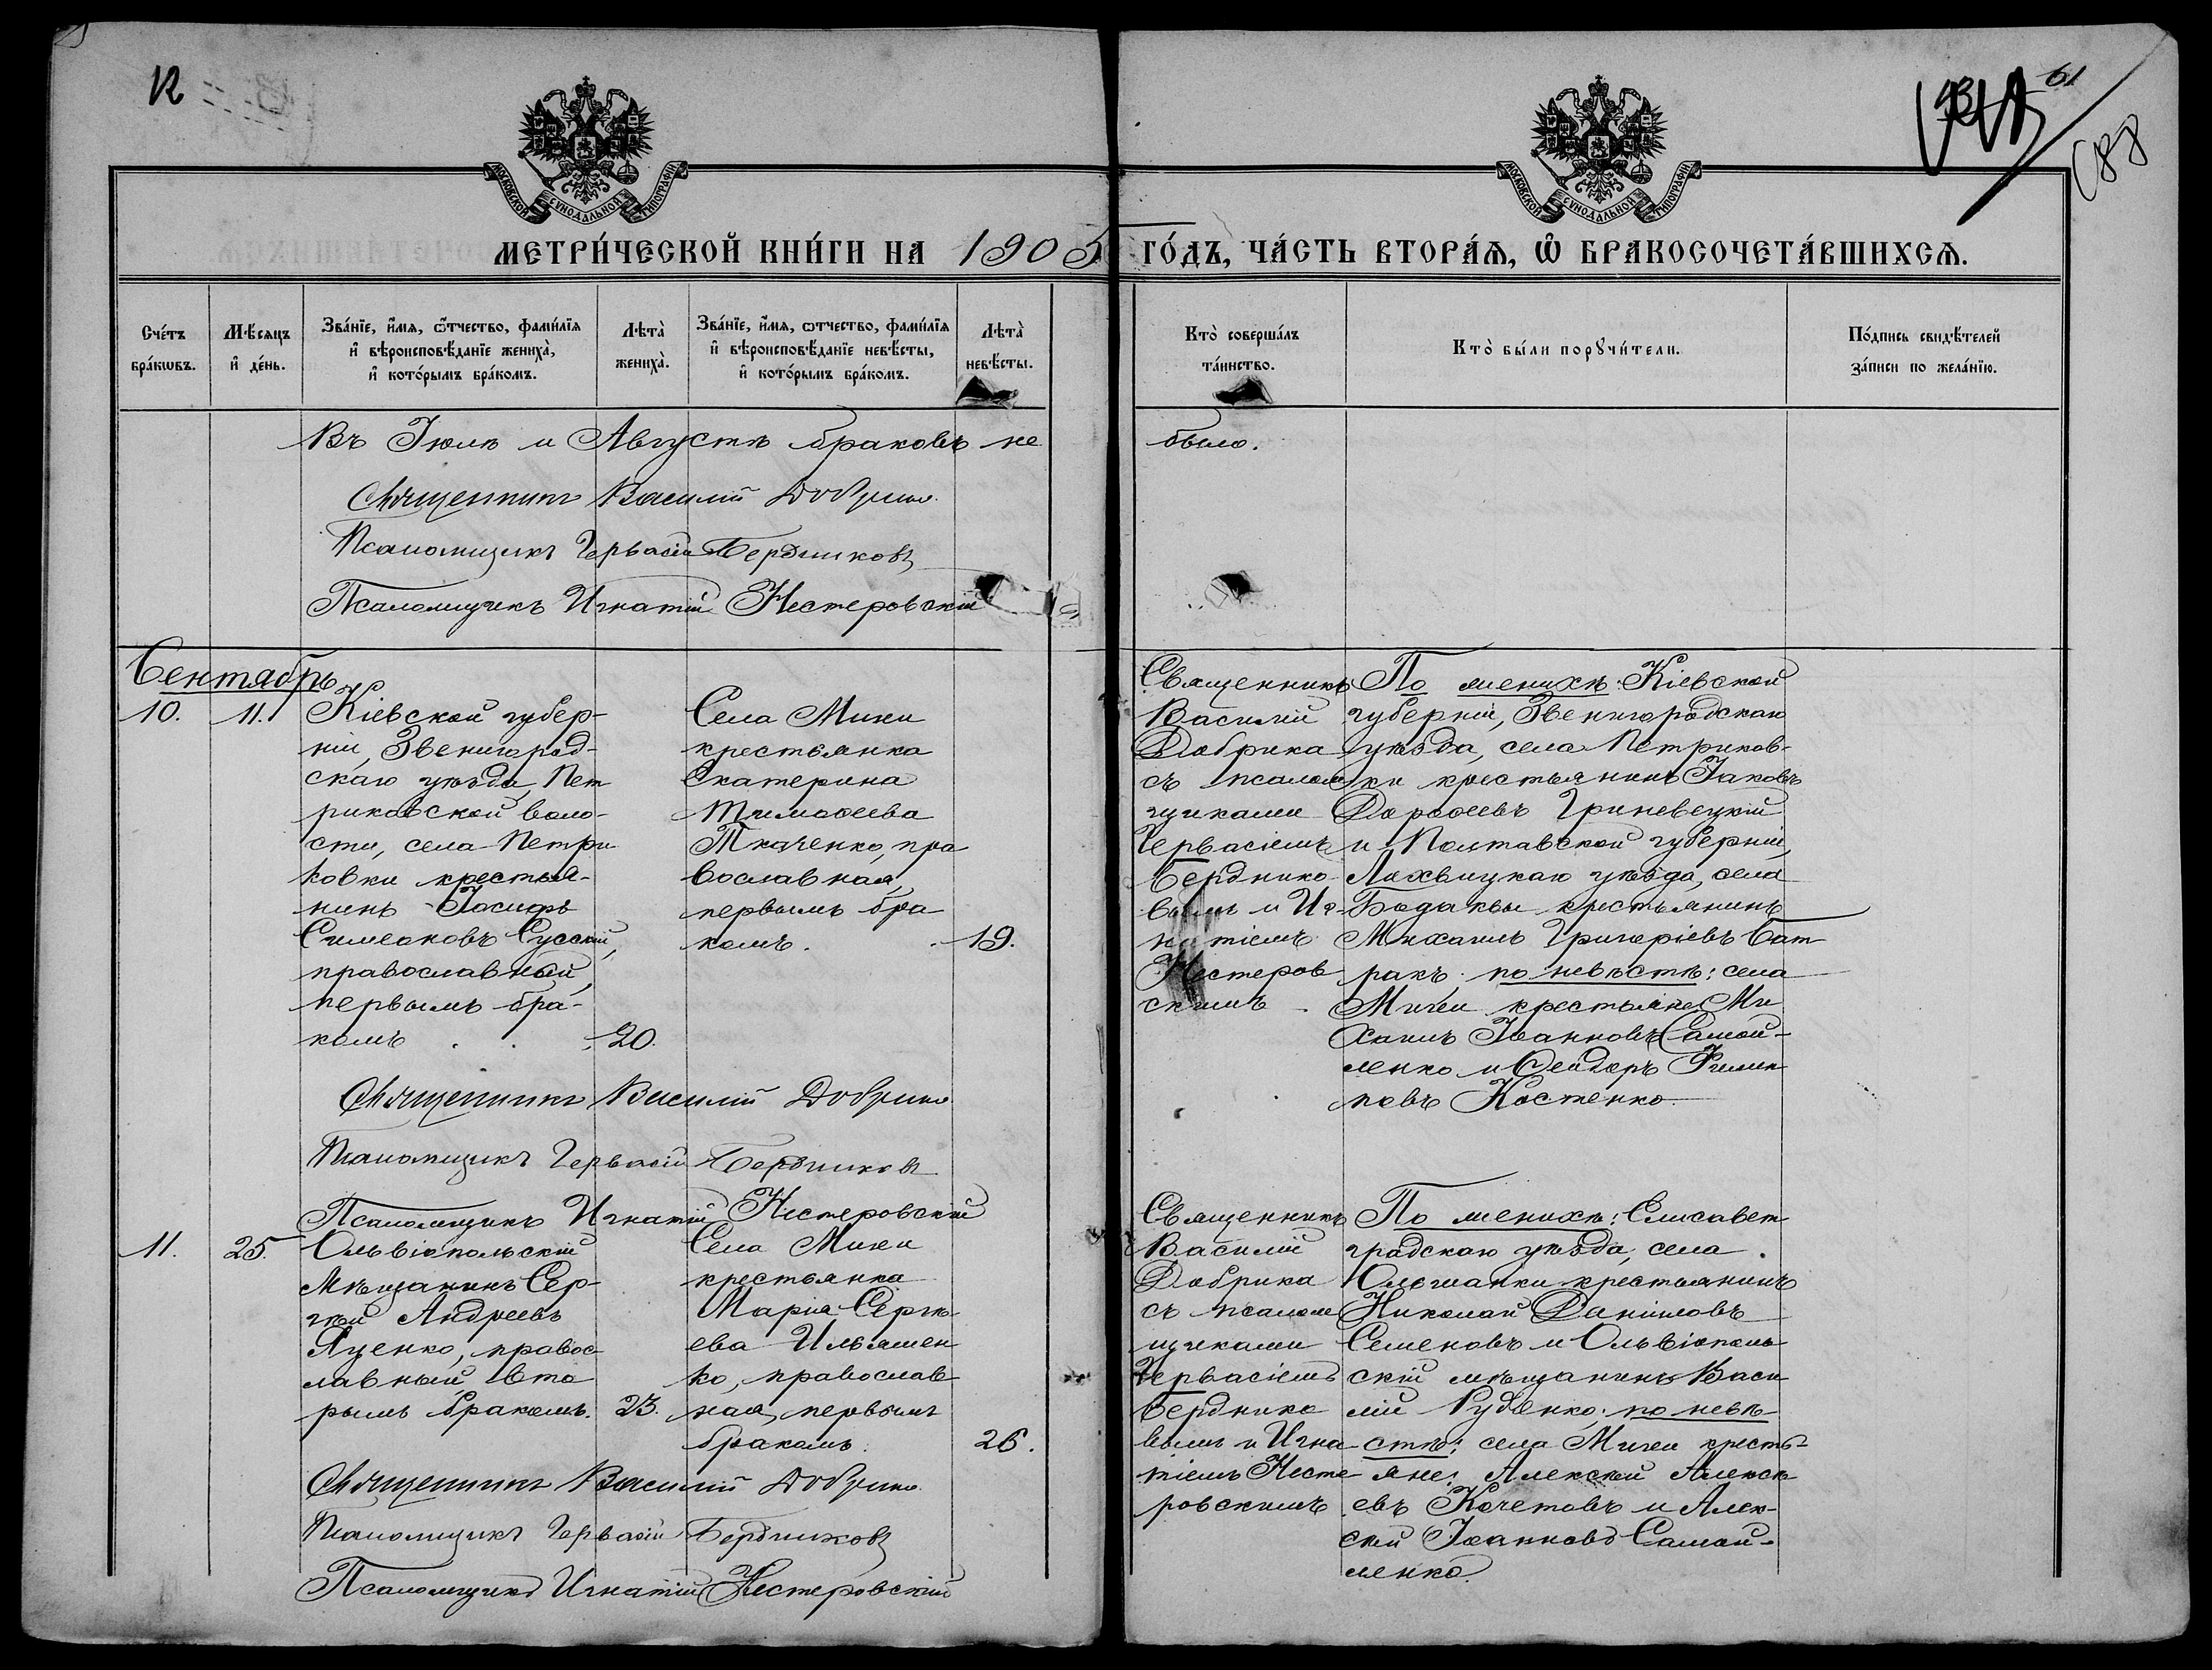 12
61
МОСКОВСКОЙ СѴНОДАЛЬНОЙ ТИПОГРАФІИ
МОСКОВСКОЙ СѴНОДАЛЬНОЙ ТИПОГРАФІИ
МЕТРИ́ЧЕСКОЙ КНИ́ГИ НА 1905 ГО́ДЪ, ЧА́СТЬ ВТОРА́Ѧ, Ѽ БРАКОСОЧЕТА́ВШИХСѦ.
Сче́тъ бра́кѡвъ.
Мѣ́сяцъ и҆ де́нь.
Зва́нїе, и҆́мя, ѻ҆́тчество, фами́лїя
и҆ вѣроисповѣ́данїе жениха̀,
и҆ кото́рымъ бра́комъ.
Лѣта̀ жениха̀.
Зва́нїе, и҆́мя, ѻ҆тчество, фами́лїя
и҆ вѣроисповѣ́данїе невѣ́сты,
и҆ кото́рымъ бра́комъ.
Лѣта̀ невѣ́сты.
Кто̀ соверша́лъ та́инство.
Кто̀ бы́ли порꙋчи́тели.
По́дпись свидѣ́телей за́писи по жела́нїю.
Въ Іюлѣ и Августѣ браковъ не было.
Священникъ Василій Добрика
Псаломщикъ Гервасій Бердниковъ
Псаломщикъ Игнатій Нестеровскій
Сентябрь
10. 11.
Кіевской губер-
ніи, Звенигород-
скаго уѣзда, Пет
риковской воло-
сти, села Петри
ковки крестья-
нинъ Іосифъ
Симеоновъ Сусскій,
православный,
первымъ бра-
комъ . . 20.
Села Мигеи
крестьянка
Екатерина
Тимоѳеева
Ткаченко, пра
вославная,
первымъ бра
комъ. . 19.
Священникъ
Василій
Добрика
съ псалом
щиками
Гервасіемъ
Берднико
вымъ и Иг-
натіемъ
Нестеров
скимъ.
По женихѣ: Кіевской
губерніи, Звенигородскаго
уѣзда, села Петриков-
ки крестьянинъ Іаковъ
Дороѳеевъ Гриневецкій
и Полтавской губерніи,
Лохвицкаго уѣзда, села
Бодаквы крестьянинъ
Михаилъ Григоріевъ Бат
ракъ; по невѣстѣ: села
Мигеи крестьяне Ми
хаилъ Іоанновъ Самой-
ленко и Сидоръ Филип
повъ Костенко.
Священникъ Василій Добрика
Псаломщикъ Гервасій Бердниковъ
Псаломщикъ Игнатій Нестеровскій
11. 25.
Ольвіопольскій
мѣщанинъ Сер-
гѣй Андреевъ
Яценко, правос
лавный, вто
рымъ бракомъ. 23.
Села Мигеи
крестьянка
Марія Сергѣ
ева Ильяшен
ко, православ
ная, первымъ
бракомъ. 26.
Священникъ
Василій
Добрика
съ псалом
щиками
Гервасіемъ
Берднико
вымъ и Игна
тіемъ Несте
ровскимъ.
По женихѣ: Елисавет
градскаго уѣзда, села
Ольшанки крестьянинъ
Николай Даніиловъ
Семеновъ и Ольвіополь
скій мѣщанинъ Васи
лій Руденко; по невѣ-
стѣ: села Мигеи кресть-
яне: Алексѣй Алексѣ
евъ Кочетовъ и Алек-
сѣй Іоанновъ Самой-
ленко.
Священникъ Василій Добрика
Псаломщикъ Гервасій Бердниковъ
Псаломщикъ Игнатій Нестеровскій